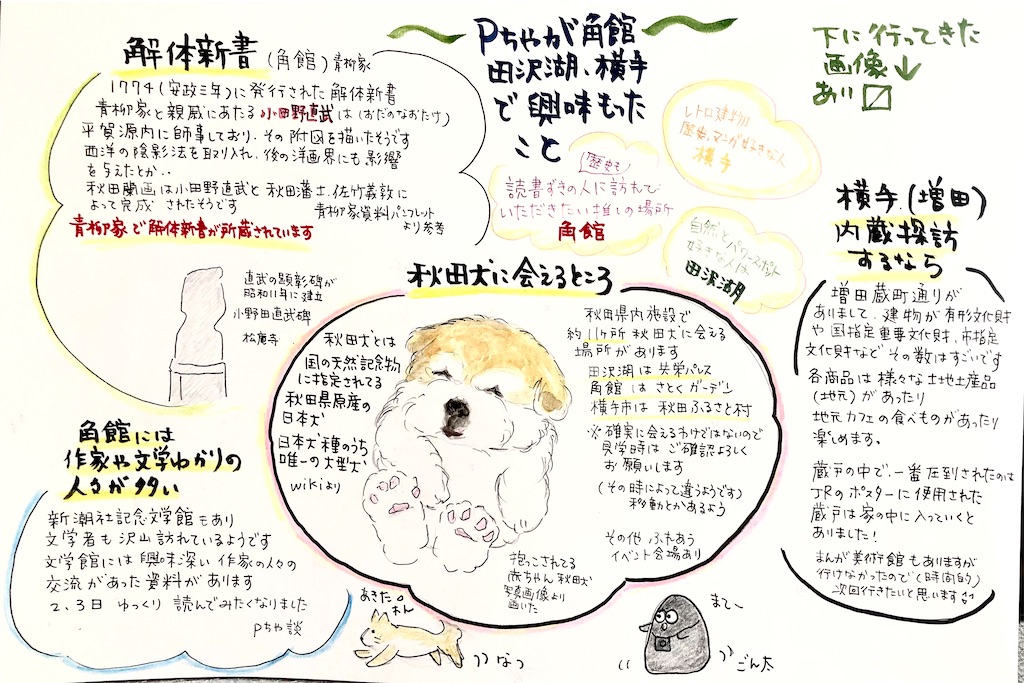 Pちゃが角館
田沢湖、横手
で興味もった
こと
下に行ってきた
画像↓
あり
解体新書(角館)青柳家
1774(安政三年)に発行された解体新書
青柳家と親戚にあたる小田野直武は(おだのなおたけ)
平賀源内に師事しており、その附図を描いたそうです
西洋の陰影法を取り入れ、後の洋画界にも影響
を与えたとか..
秋田蘭画は小田野直武と秋田藩士、佐竹義敦に
よって完成されたそうです
青柳家資料パンフレット
より参考
青柳家で解体新書が所蔵されています
直武の顕彰碑が
昭和11年に建立
小野田直武碑
松庵寺
歴史も
読書ずきの人に訪れて
いただきたい推しの場所
角館
レトロ建物
歴史、マンガがすきな人
横手
自然とパワースポット
好きな人は
田沢湖
秋田犬に会えるところ
秋田犬とは
国の天然記念物
に指定されてる
秋田県原産の
日本犬
日本犬種のうち
唯一の大型犬
wikiより
秋田県内施設で
約11ヶ所秋田犬に会える
場所があります
田沢湖は共栄パレス
角館はさとくガーデン
横手市は秋田ふるさと村
※確実に会えるわけではないので
見学時はご確認よろしく
お願いします
(その時によって違うようです)
移動とかあるよう
その他ふれあう
イベント会場あり
抱っこされてる
赤ちゃん秋田犬
写真画像より
画いた
横手(増田)
内蔵探訪
するなら
増田蔵町通りが
ありまして、建物が有形文化財
や国指定重要文化財、市指定
文化財などその数はすごいです
各商品は様々な土地土産品
(地元)があったり
地元カフェの食べものがあったり
楽しめます。
蔵戸の中で一番圧到されたのは
JRのポスターに使用された
蔵戸は家の中に入っていくと
ありました!
まんが美術館もありますが
行けなかったので(時間的)
次回行きたいと思います
角館には
作家や文学ゆかりの
人々が多い
新潮社記念文学館もあり
文学者も沢山訪れているようです
文学館には興味深い作家の人々の
交流があった資料があります
2、3日ゆっくり読んでみたくなりました
Pちゃ談
あきた。
わん
なつ
まてー
ごん太